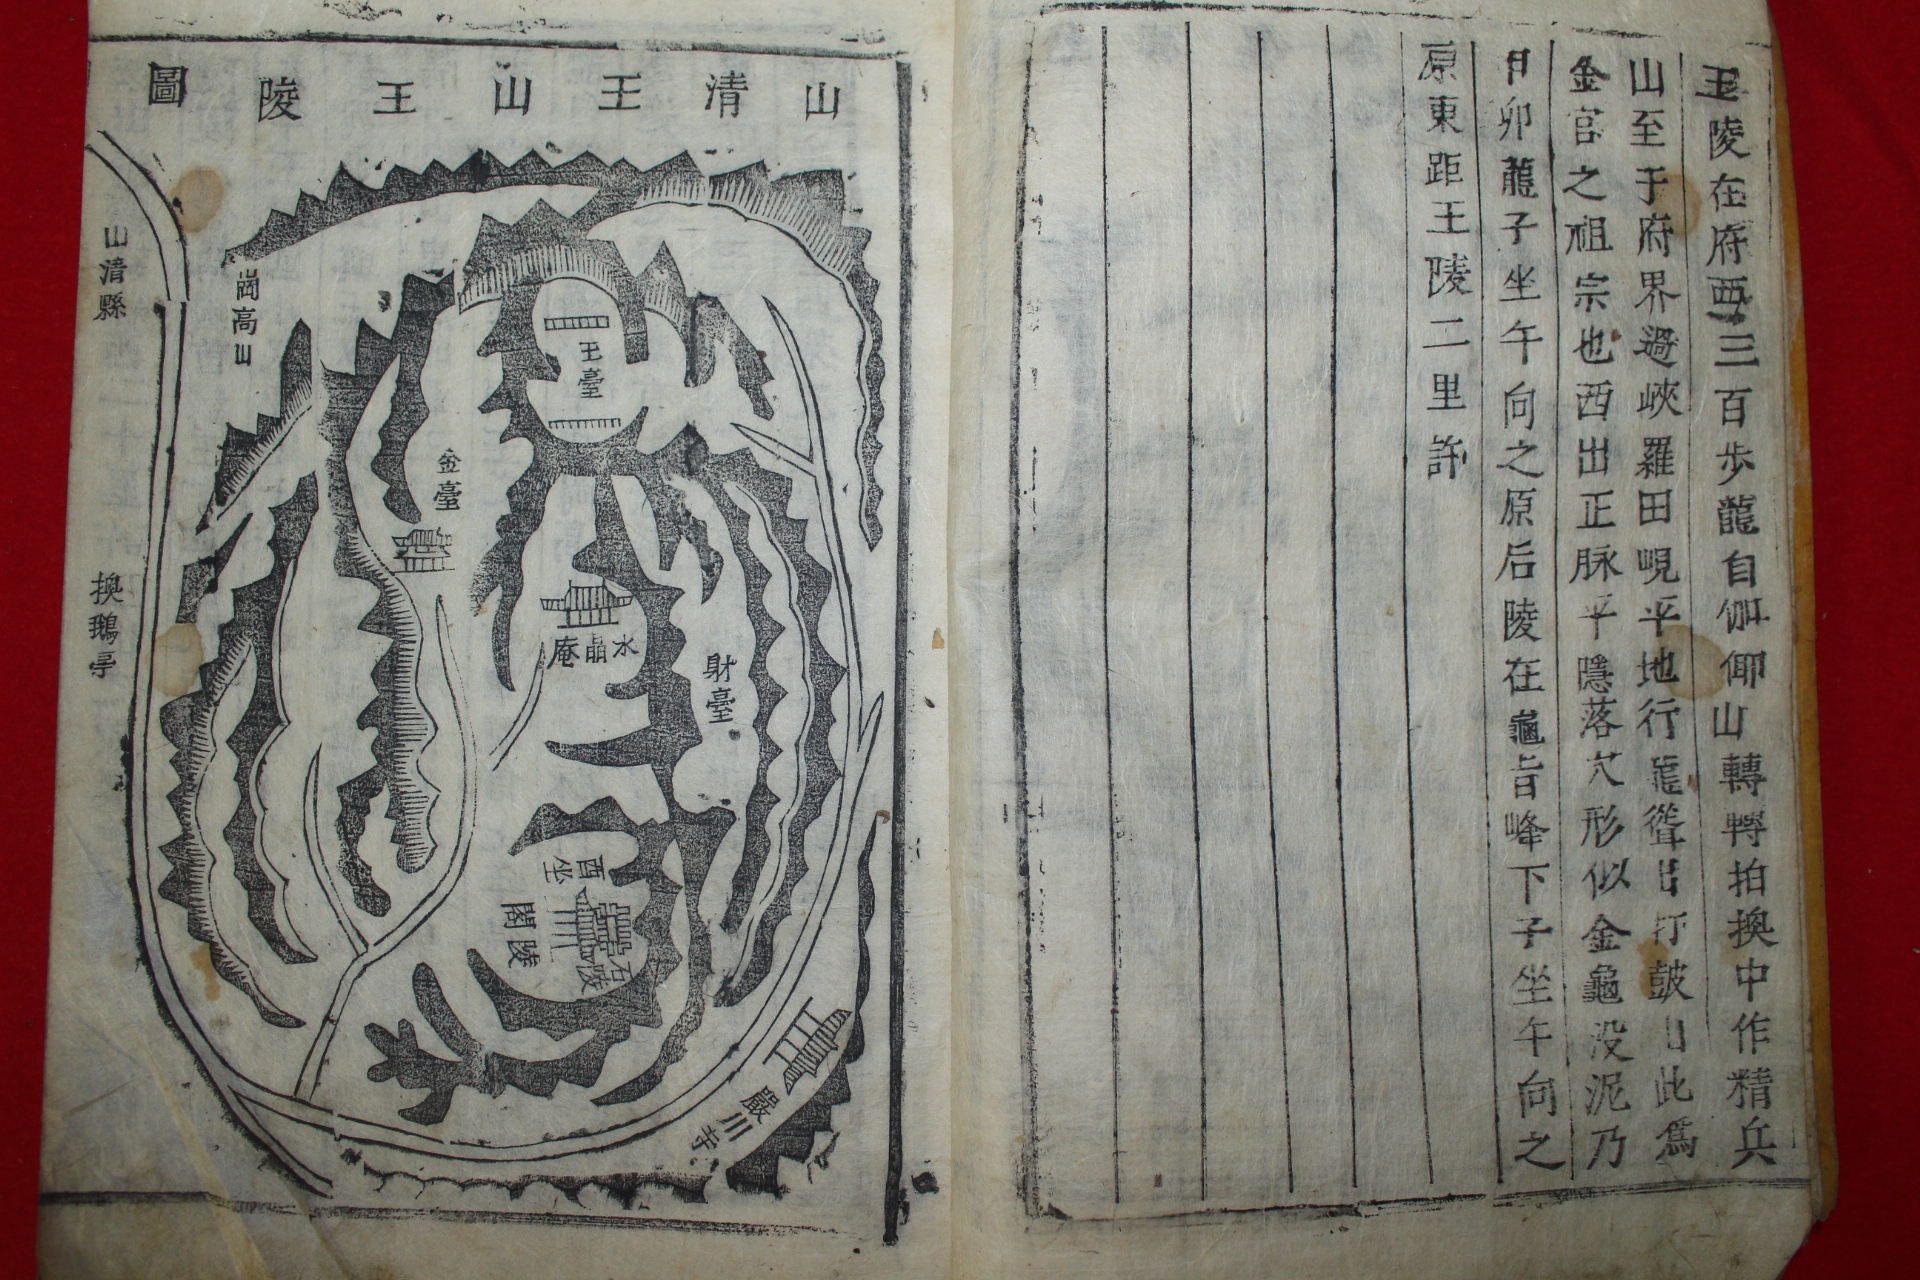 王陵在府西三百步龍自伽倻山轉轉拍換中作精兵
山至于府界過峽羅田峴平地行龍聳出打鼓山此爲
金官之祖宗也西出正脉平隱落穴形似金龜没泥乃
甲卯龍子坐午向之原后陵在龜旨峰下子坐午向之
原東距王陵二里許
山清王山王陵圖
王臺
金臺
水晶庵
財臺
酉坐
石陵
陵閣
嚴川寺
高山
山清縣
換鵝亭